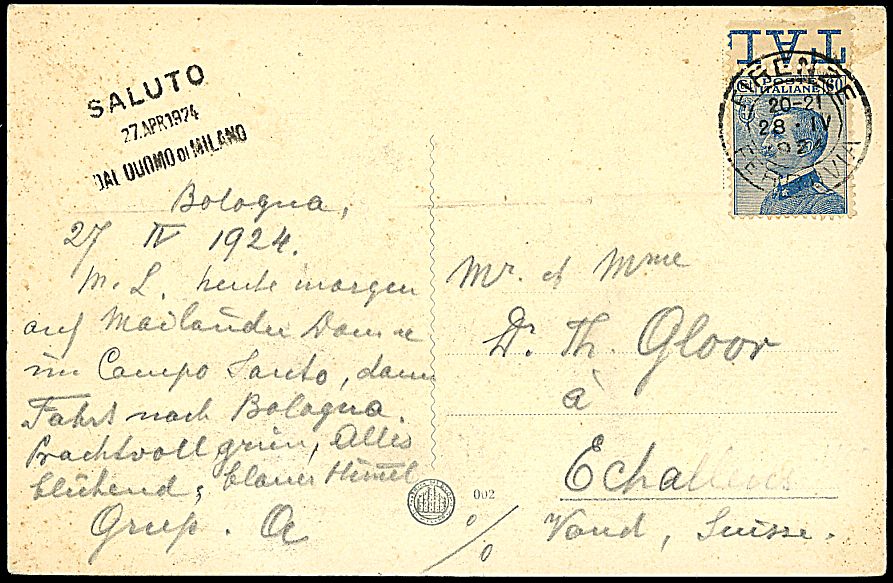 SALUTO
27.APR1924
DAL DUOMO DI MILANO
Bologna,
27 IV 1924.
M. L. heute morgen
auf Mailänder Dom
im Campo Santo, dann
Fahrt nach Bologna.
Prachtvoll grün, Alles
blühend, blauer Himmel
TAL
POSTE
ITALIANE
FIRENZE
20-21
28 · IV
1924
FERROVIA
Mr. et Mme
Dr. Th. Gloor
à
Echallens
Vaud, Suisse.
002